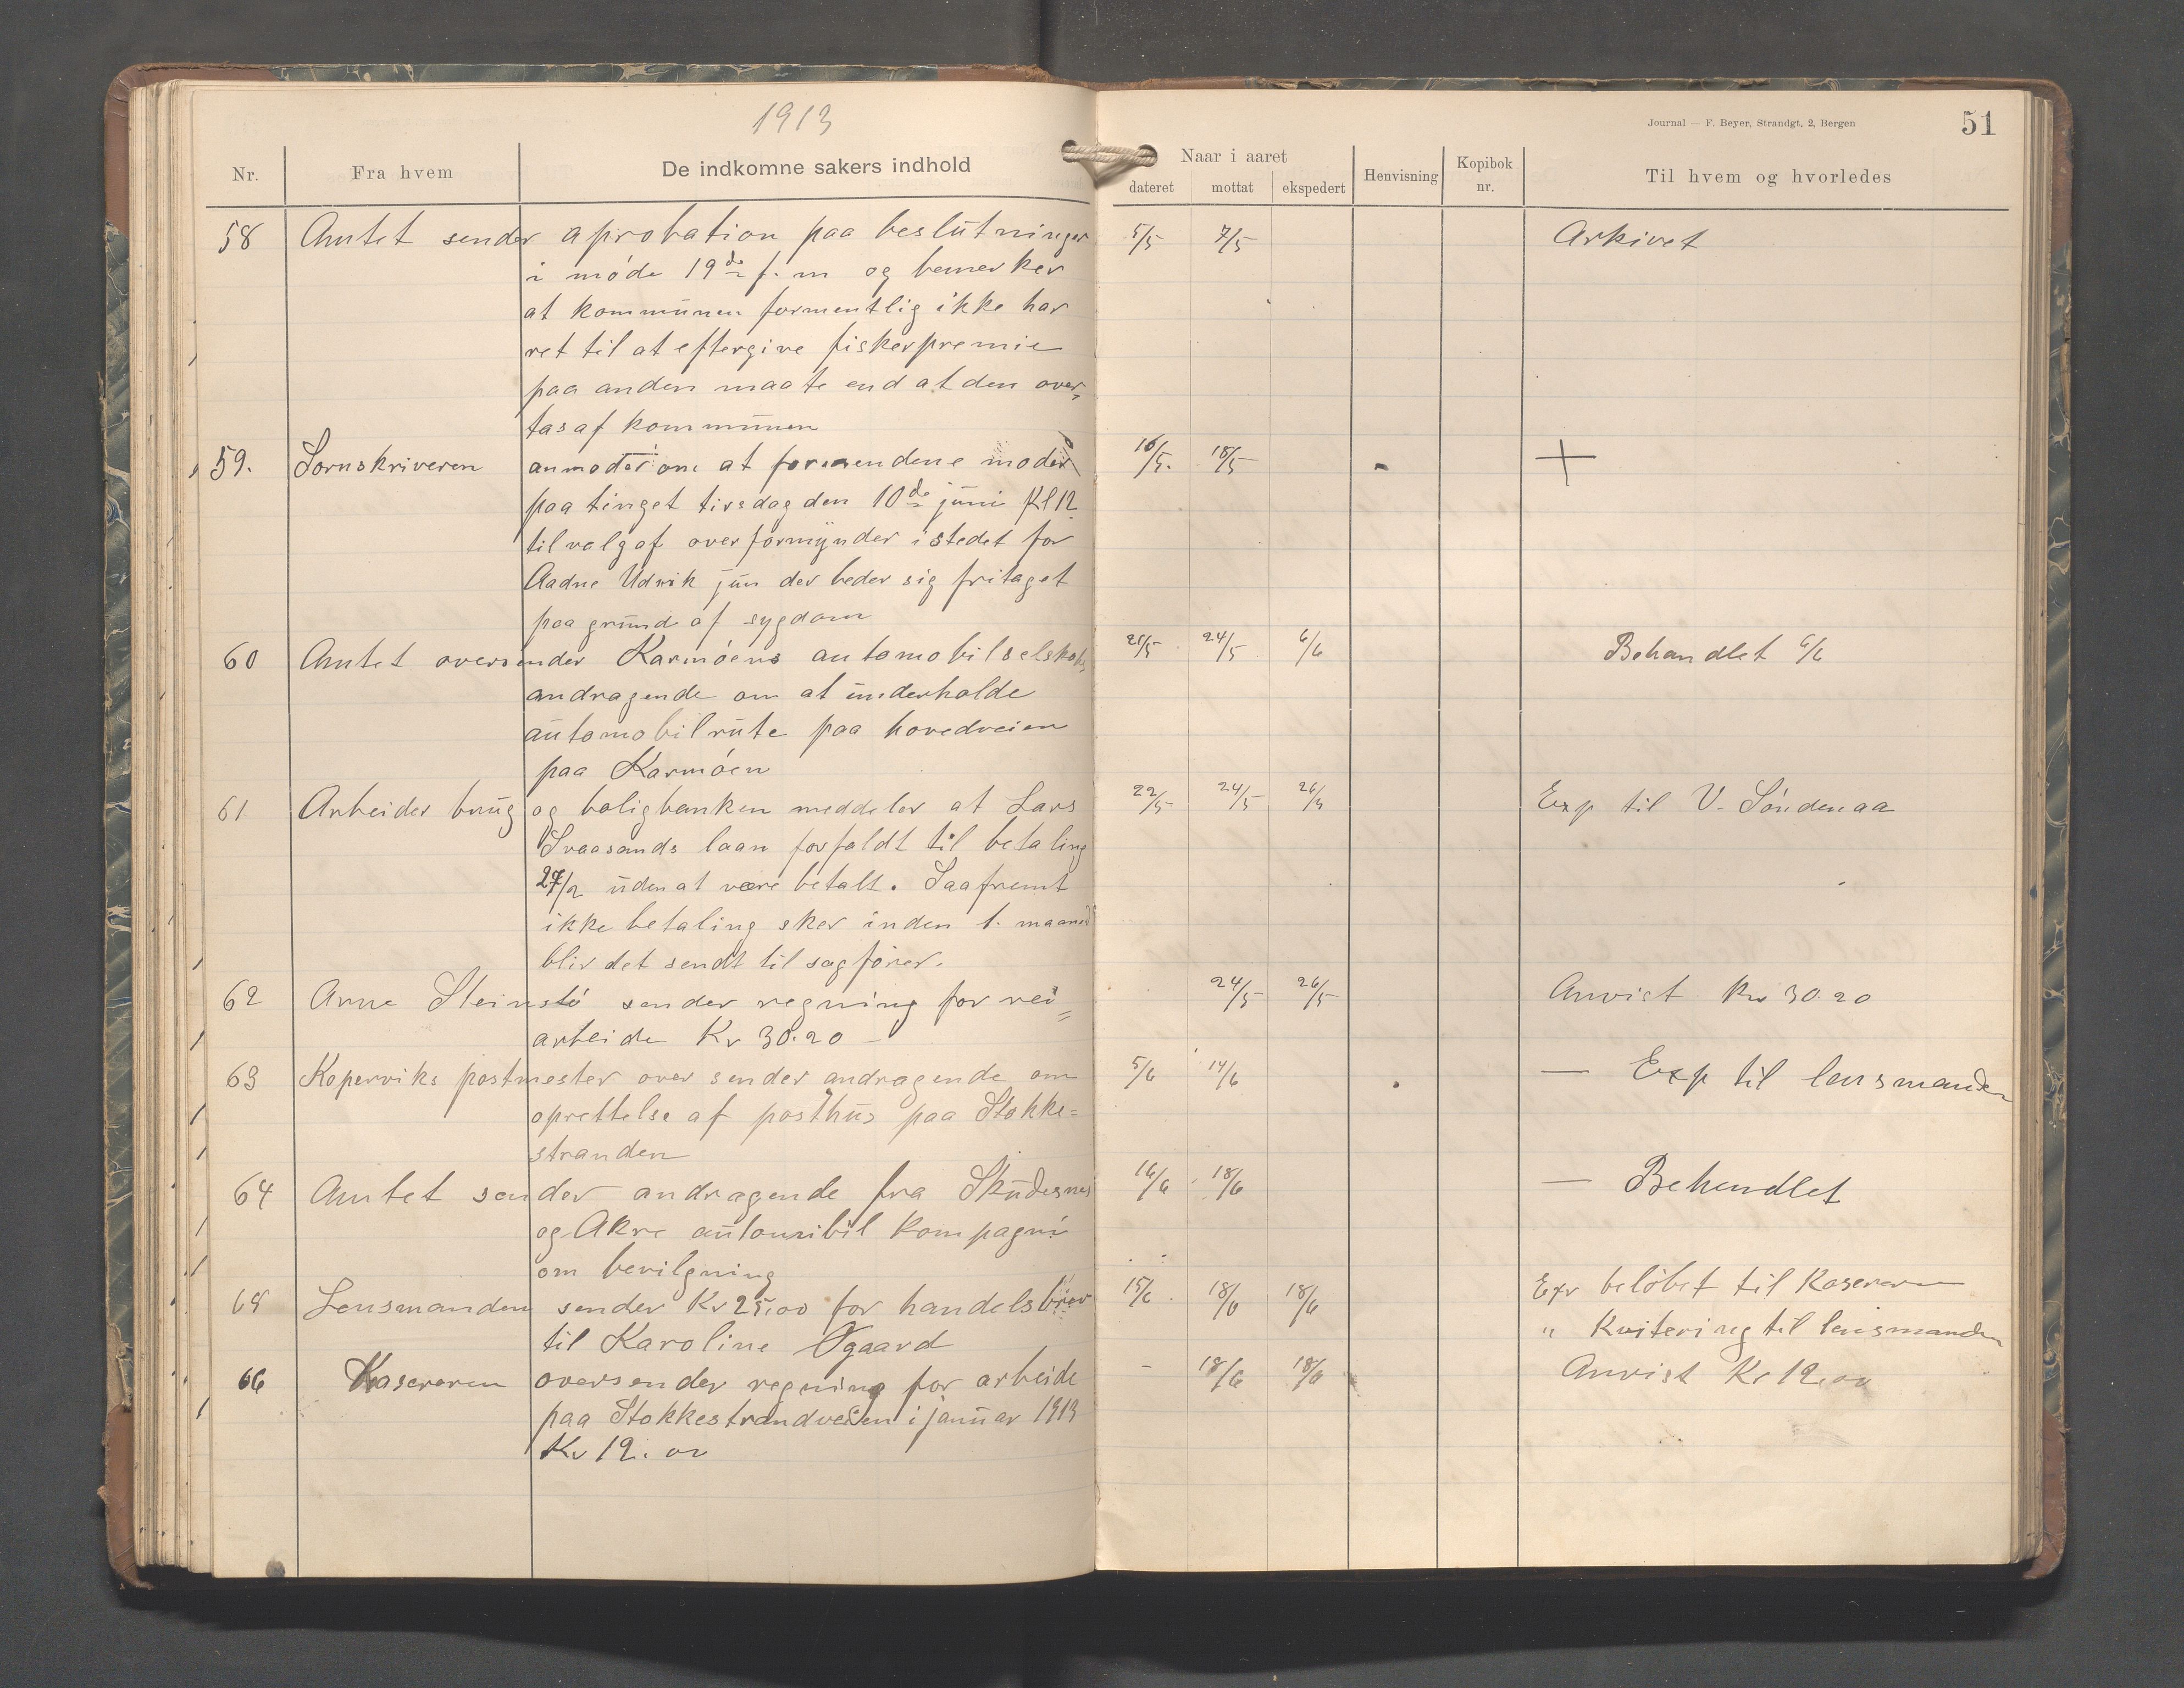 1913
Journal — F. Beyer, Strandgt. 2, Bergen
51
Nr. Fra hvem De indkomne sakers indhold Naar i aaret dateret mottat ekspedert Henvisning Kopibok nr. Til hvem og hvorledes
58 Amtet sender aprobation paa beslutninger 5/5 7/5 Arkivet
i møde 19de f. m og bemerker
at kommunen formentlig ikke har
ret til at eftergive fiskerpremie
paa anden maate end at den over,
tas af kommunen
59. Sornskriveren anmoder om at formendene møder 16/5. 18/5 +
paa tinget tirsdag den 10de juni Kl 12
til valg af overformynder istedet for
Aadne Udvik jun der beder sig fritaget
paa grund af sygdom
60 Amtet oversender Karmøens automobilselskabs 21/5 24/5 6/6 Behandlet 6/6
andragende om at underholde
automobilrute paa hovedveien
paa Karmøen
61 Arbeider brug og boligbanken meddeler at Lars 22/5 24/5 26/5 Exp til V. Søndenaa
Svaasands laan forfaldt til betaling
27/2 uden at være betalt. Saafremt
ikke betaling sker inden 1. maaned
blir det sendt til sagfører.
62 Arne Steinstø sender regning for vei= 24/5 26/5 Anvist Kr 30.20
arbeide Kr 30.20
63 Koperviks postmester over sender andragende om 5/6 14/6 — Exp til lensmanden
oprettelse af posthus paa Stokke=
stranden
64 Amtet sender andragende fra Skudesnes 16/6 18/6 — Behandlet
og Akre automibil kompagni
om bevilgning
65 Lensmanden sender Kr 25,00 for handelsbrev 15/6. 18/6 18/6 Exp beløbet til Kasereren
til Karoline Øgaard " Kvitering til lensmanden
66 Kasereren oversender regning for arbeide - 18/6 18/6 Anvist Kr 12,00
paa Stokkestrandveien i januar 1913
Kr 12.00